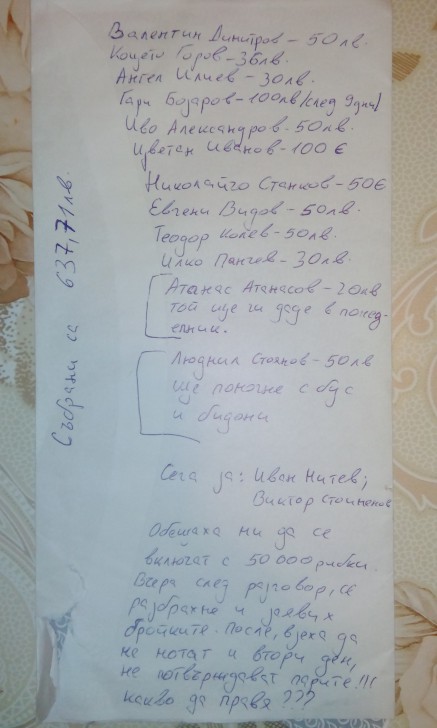 Валентин Димитров - 50 лв.
Коцето Горов - 36 лв.
Ангел Илиев - 30 лв.
Гари Бозаров - 100 лв /след 9 дни/
Иво Александров - 50 лв.
Цветан Иванов - 100 €
Николайчо Станков - 50 €
Евгени Видов - 50 лв.
Теодор Колев - 50 лв.
Илко Панчев - 30 лв.
Атанас Атанасов - 20 лв
той ще ги даде в понед-
елник.
Людмил Стоянов - 50 лв
ще помогне с бус
и бидони
Събрани са 637,71 лв.
Сега за: Иван Митев;
Виктор Стоименов
Обещаха ми да се
включат с 50 000 рибки.
Вчера след разговор, се
разбрахме и заявих
бройките. После, взеха да
не мотат и втори ден,
не потвърждават парите!!!
какво да правя ???